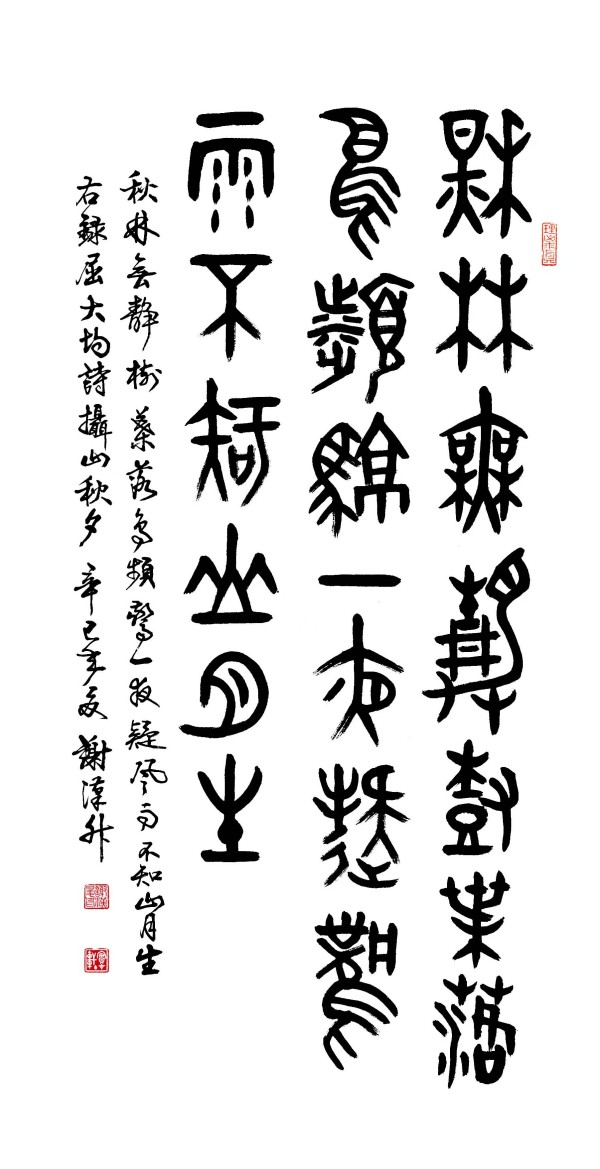 秋林無靜樹葉落
鳥頻驚一夜疑風
雨不知山月生
秋林無靜樹葉落鳥頻驚一夜疑風雨不知山月生
右錄屈大均詩攝山秋夕 辛巳年夏 謝